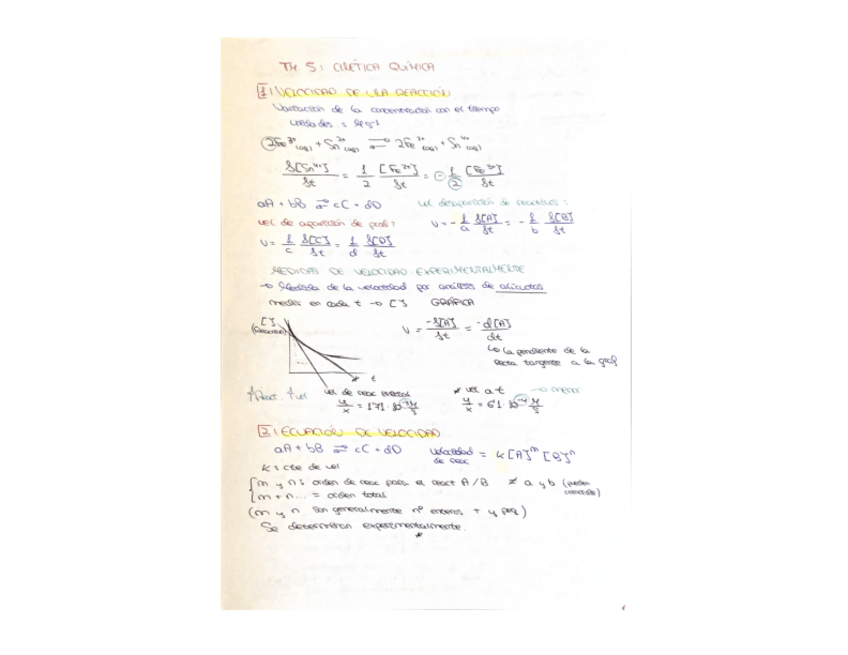 TM 5: CINÉTICA QUÍMICA
1: VELOCIDAD DE UNA REACCIÓN
Variación de la concentración con el tiempo
unidades = M s⁻¹
2Fe³⁺(aq) + Sn²⁺(aq) ⇌ 2Fe²⁺(aq) + Sn⁴⁺(aq)
Δ[Sn⁴⁺]/Δt = 1/2 [Fe²⁺]/Δt = - 1/2 [Fe³⁺]/Δt
aA + bB ⇌ cC + dD vel desaparición de reactivos:
vel de aparición de prods: V = - 1/a Δ[A]/Δt = - 1/b Δ[B]/Δt
V = 1/c Δ[C]/Δt = 1/d Δ[D]/Δt
MEDIDAS DE VELOCIDAD EXPERIMENTALMENTE
→ Medida de la velocidad por análisis de alícuotas
medir en cada t → [ ] GRÁFICA
[ ]
V = -Δ[A]/Δt = -d[A]/dt
↳ la pendiente de la
recta tangente a la graf
t
↑React. ↑vel vel de reac inicial * vel a t → menor
y/x = 1'71·10⁻³ M/s y/x = 6'1·10⁻⁴ M/s
2: ECUACIÓN DE VELOCIDAD
aA + bB ⇌ cC + dD velocidad de reac = k[A]ᵐ [B]ⁿ
k = cte de vel
m y n = orden de reac para el react A/B ≠ a y b (pueden coincidir)
m + n... = orden total
(m y n son generalmente nº enteros + y peq)
Se determinan experimentalmente.
*